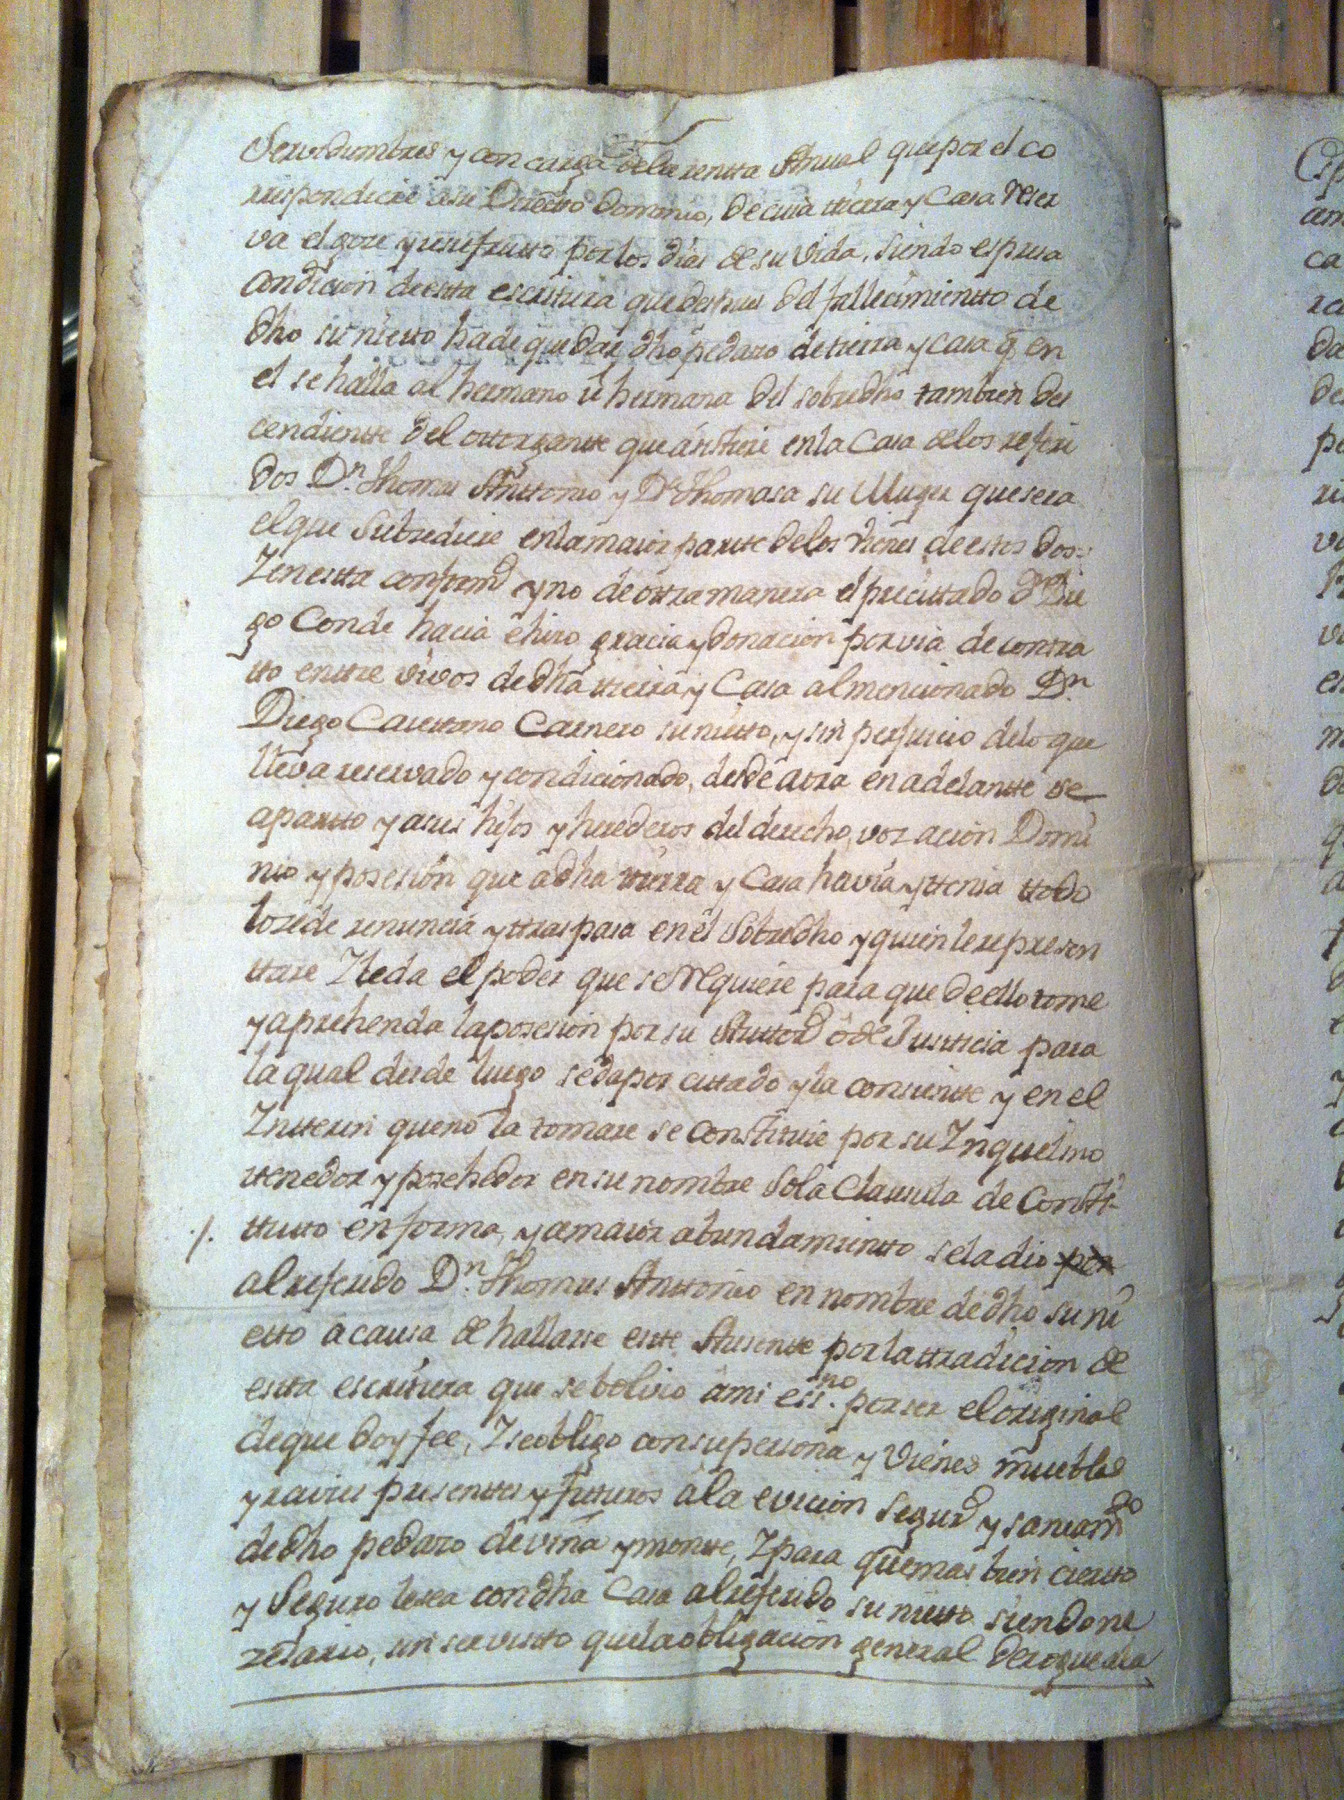 Servidumbres y con carga dela rentta Anual que por el co
rrespondiere a su Directto Dominio, de cuia tierra y Casa reser
va el goze y usufrutto por los dias de su vida, siendo espresa
condicion de estta escritura que despues del fallecimientto de
dho su nietto ha de quedar dho pedazo de tierra y casa q̃ en
el se halla al hermano u hermana del sobredho tambien des
cendientte del ottorgantte que asistiere en la Casa delos referi
dos Dn. Thomas Anttonio y Dª Thomasa su Muger que sera
el que subcediere en la maior partte delos vienes de estos dos=
Y en estta conformd y no de ottra manera el precittado Dn Die
go Conde hacia e hizo gracia y donacion por via de contra
tto enttre vivos de dha tierra y Casa al mencionado Dn.
Diego Caiettano Carnero su nietto, y sin perjuicio delo que
lleva reservado y condicionado, desde aora en adelantte se
apartto y a sus hijos y herederos del derecho, voz acion Domi
nio y posesion que a dha tierra y Casa havia y ttenia ttodo
lo zede renuncia y ttraspasa en el sobredho y quien le represen
ttare Y le da el poder que se requiere para que de ello tome
y aprehenda la posesion por su Auttord o de Justicia para
la qual desde luego se da por cittado y la consientte y en el
Ynterin que no la tomare se constituie por su Ynquilino
ttenedor y poseheedor en su nombre sola Clausula de Consti-
./. ttutto en forma, y a maior abundamientto se la dio por
al referido Dn. Thomas Anttonio en nombre de dho su ni
etto a causa de hallarse estte Ausentte por la ttradicion de
estta escritura que se bolvio a mi essno. por ser el original
de que doy fee, Y se obligo con su persona y vienes muebles
y raizes presenttes y futturos a la evicion segurd y saneamto
de dho pedazo de viña y montte, Y para q̃ mas bien ciertto
y Seguro le sea con dha Casa al referido su nietto siendo ne
zesario, sin
que la obligacion general derogue a la